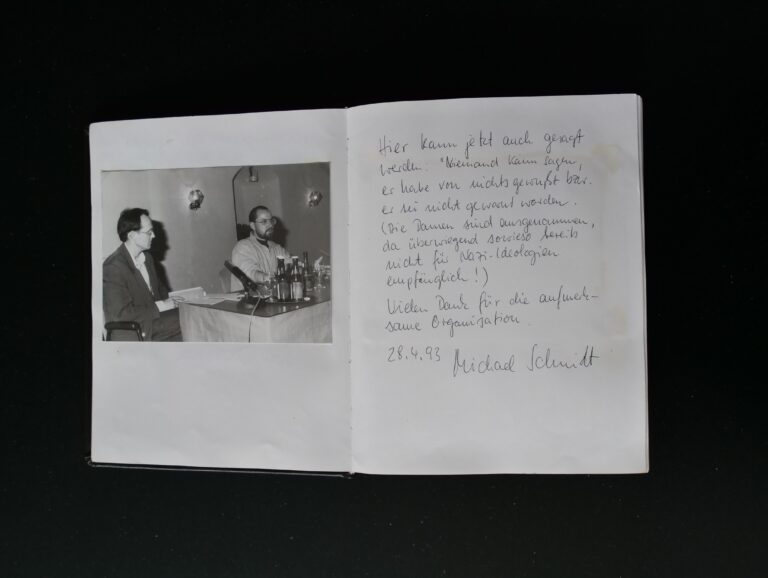 Hier kann jetzt auch gesagt
werden: "Niemand kann sagen,
er habe von nichts gewußt bzw.
er sei nicht gewarnt worden.
(Die Damen sind ausgenommen,
da überwiegend sowieso bereits
nicht für Nazi-Ideologien
empfänglich!)
Vielen Dank für die aufmerk-
same Organisation.
28.4.93 Michael Schmidt